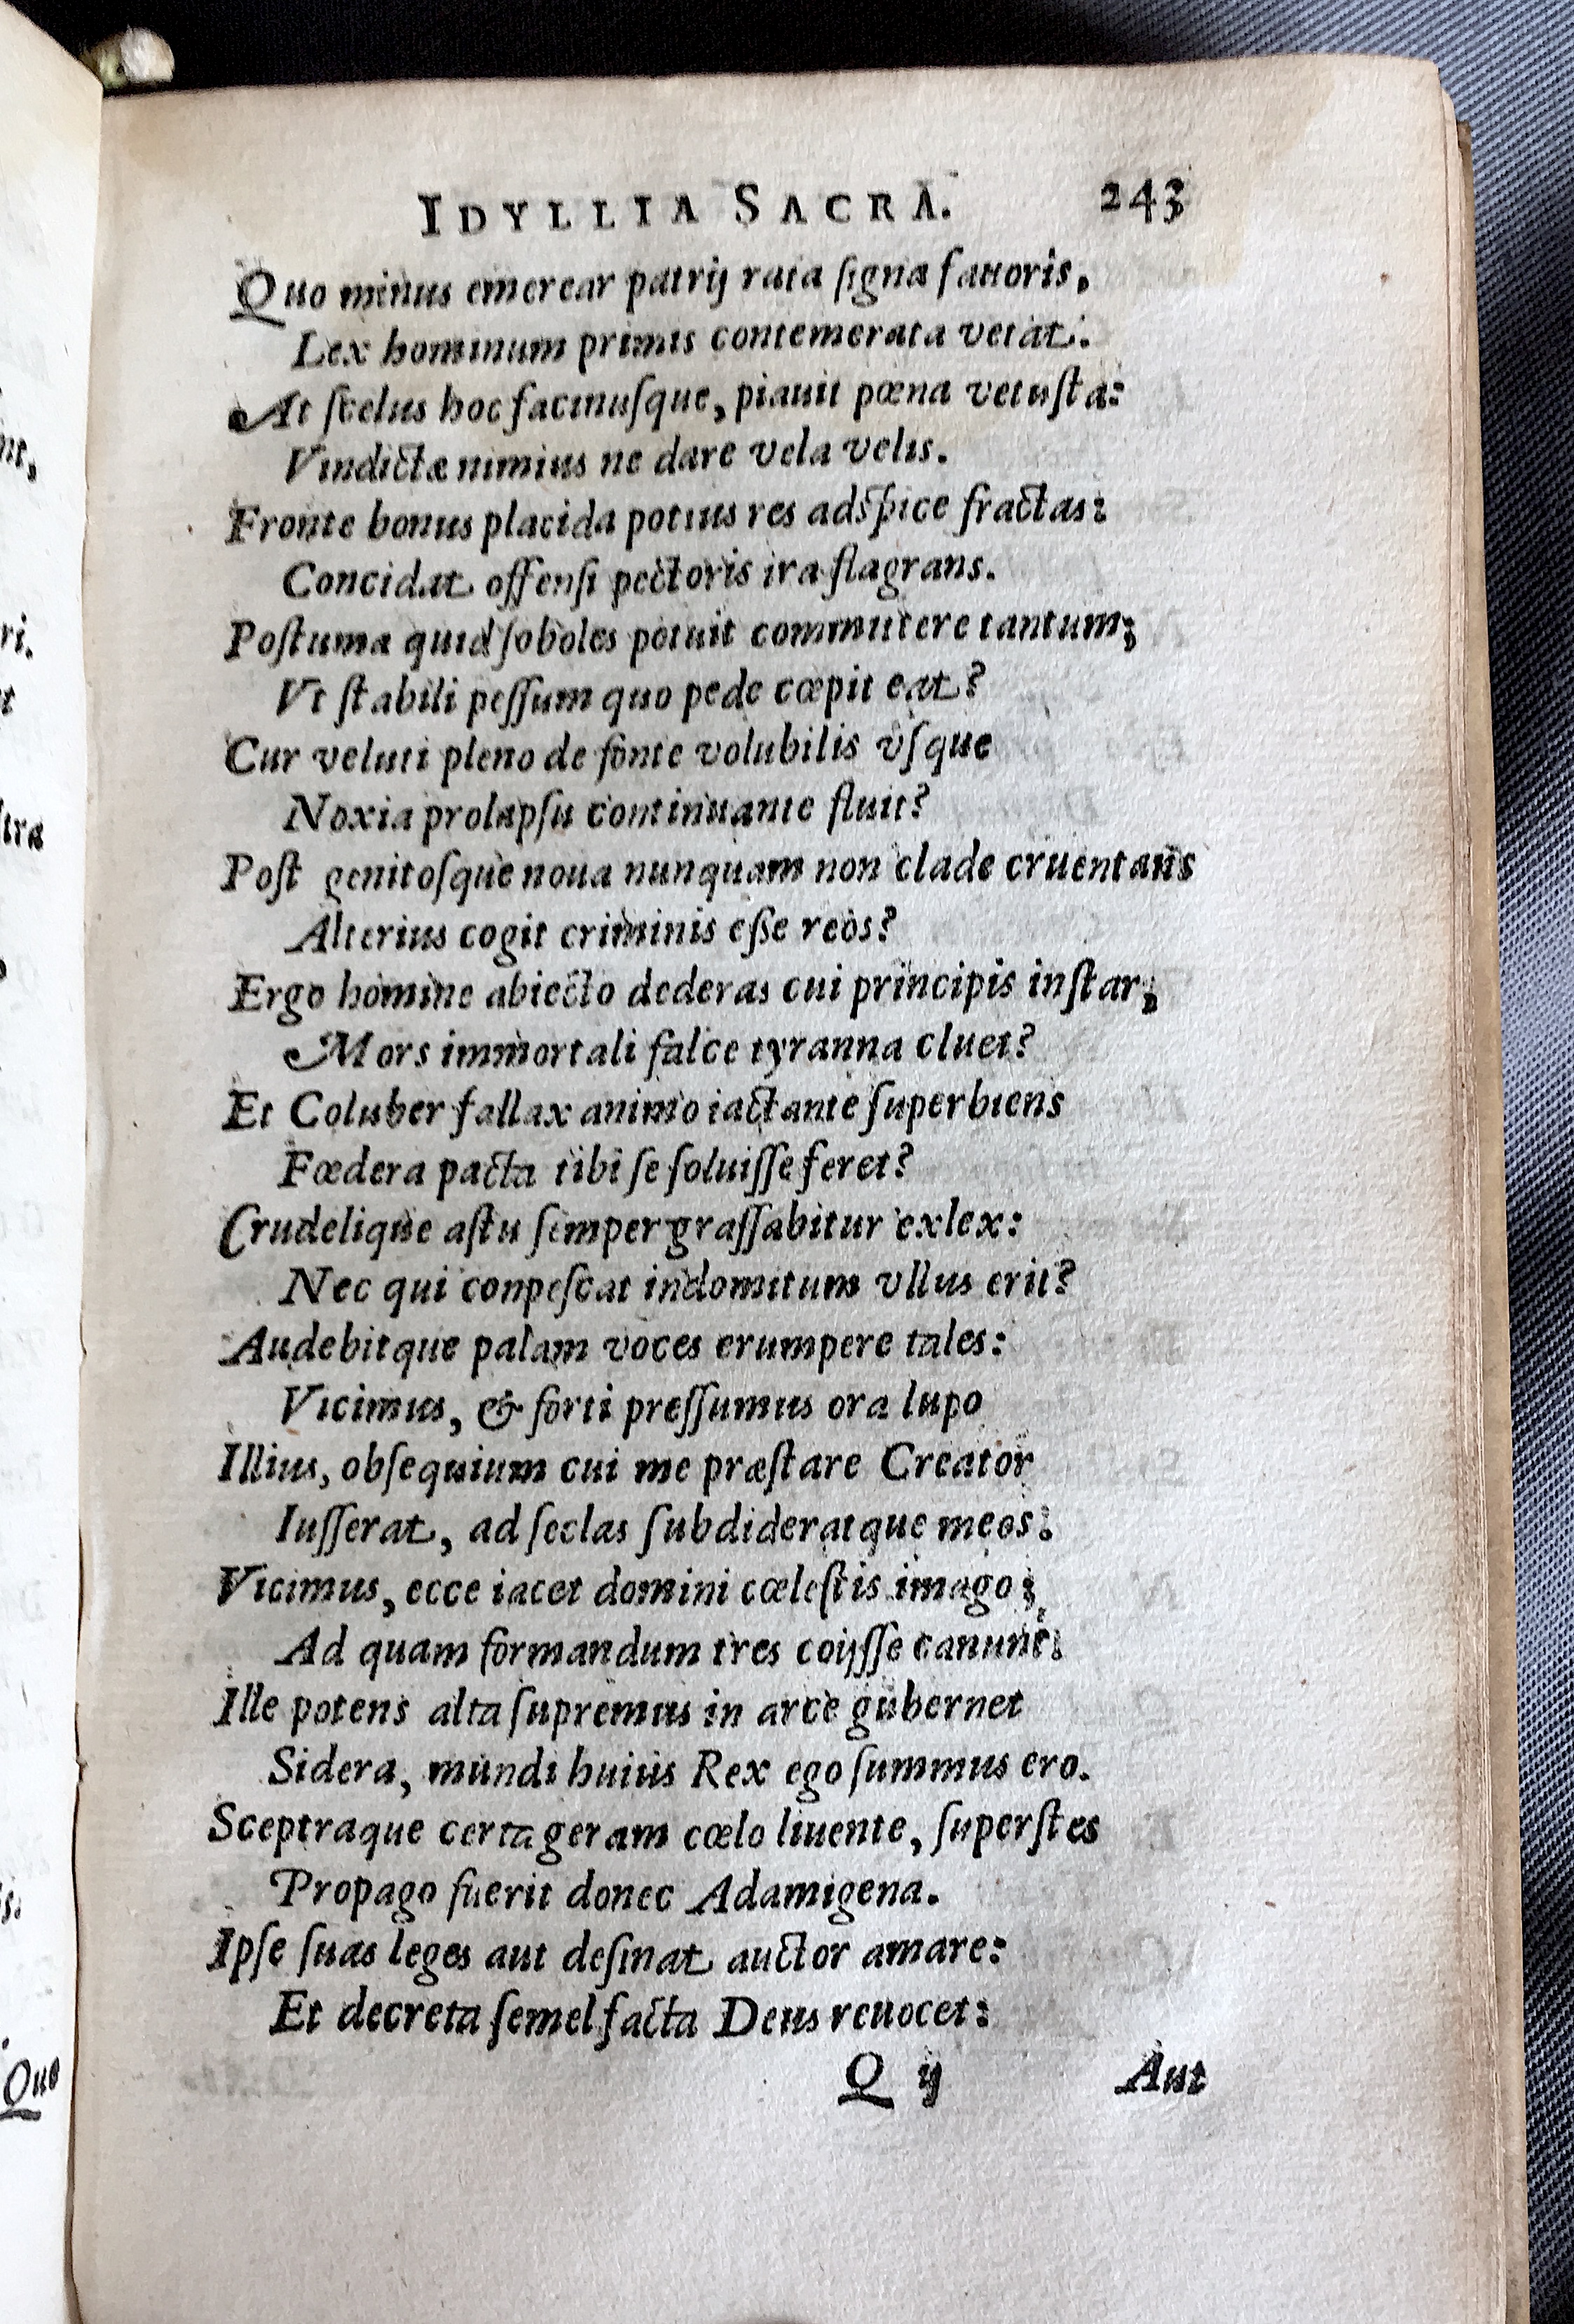 IDYLLIA SACRA. 243
Quo minus emerear patrij rata ſigna fauoris,
Lex hominum primis contemerata vetat:
At ſcelus hoc facinuſque, piauit pœna vetuſta:
Vindictæ nimius ne dare vela velis.
Fronte bonus placida potius res adſpice fractas:
Concidat offenſi pectoris ira flagrans.
Poſtuma quid ſoboles potuit committere tantum;
Vt ſtabili peſſum quo pede cœpit eat?
Cur veluti pleno de fonte volubilis vſque
Noxia prolapſu continuante fluit?
Poſt genitoſque noua nunquam non clade cruentans
Alterius cogit criminis eſſe reos?
Ergo homine abiecto dederas cui principis inſtar;
Mors immortali falce tyranna cluet?
Et Coluber fallax animo iactante ſuperbiens
Fœdera pacta tibi ſe ſoluiſſe feret?
Crudelique aſtu ſemper graſſabitur exlex:
Nec qui conpeſcat indomitum vllus erit?
Audebitque palam voces erumpere tales:
Vicimus, & forti preſſumus ora lupo
Illius, obſequium cui me præſtare Creator
Iuſſerat, ad ſeclas ſubdideratque meos:
Vicimus, ecce iacet domini cœleſtis imago;
Ad quam formandum tres coijſſe canunt:
Ille potens alta ſupremus in arce gubernet
Sidera, mundi huius Rex ego ſummus ero.
Sceptraque certa geram cœlo liuente, ſuperſtes
Propago fuerit donec Adamigena.
Ipſe ſuas leges aut deſinat auctor amare:
Et decreta ſemel facta Deus reuocet:
Q ij Aut
nt,
ri.
t
ſtra
Quo